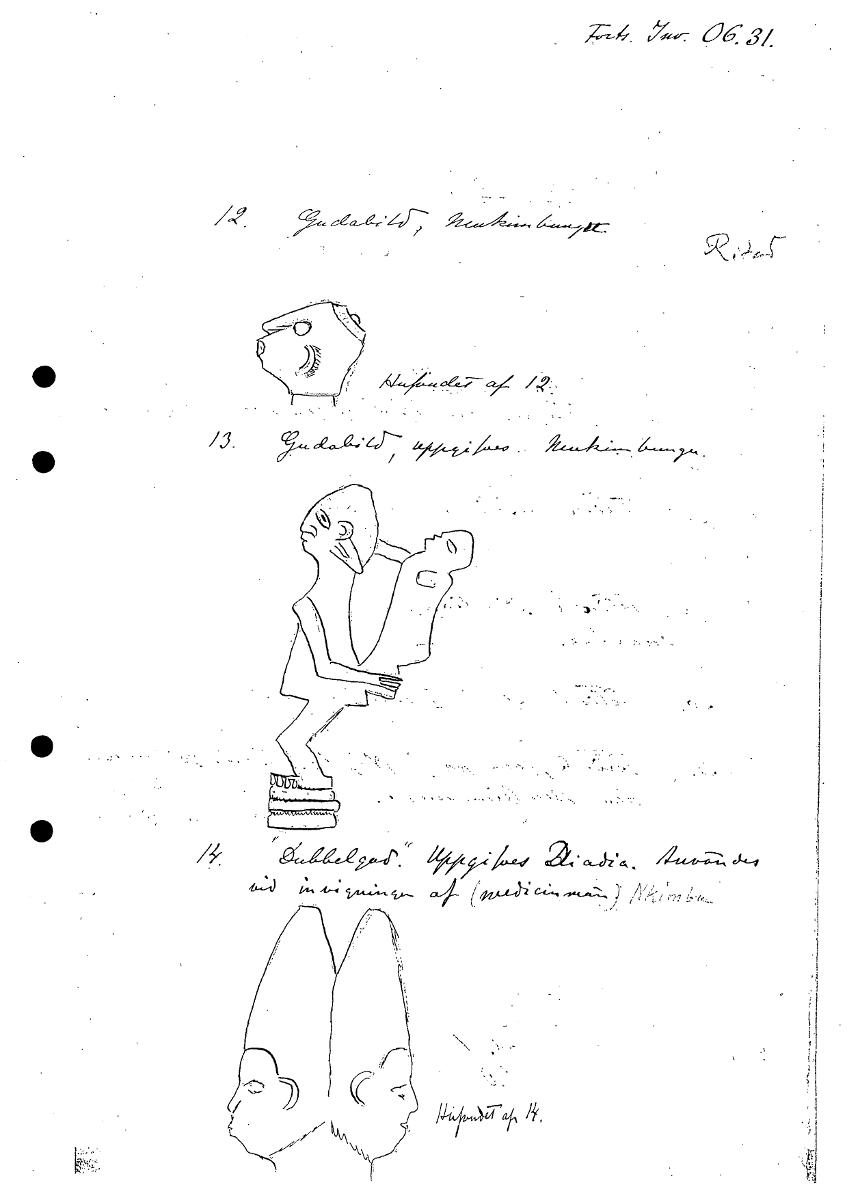 Forts. Inv. 06.31.
12. Gudabild, Neukimbungu
Ritad
Hufvudet af 12.
13. Gudabild, uppgifves Neukimbungu.
14. "Dubbelgud." Uppgifves Diadia. Användes
vid invigningen af (medicinmän) Nkimba
Hufvudet af 14.